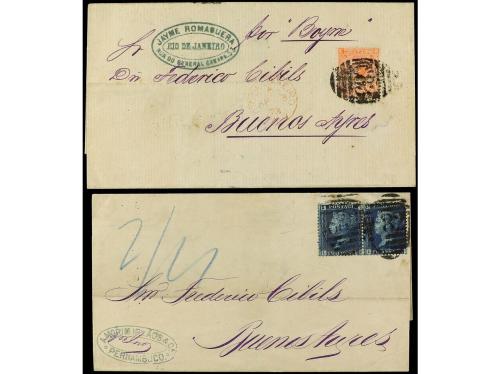 JAYME ROMAGUERA
RIO DE JANEIRO
RUA DO GENERAL CAMARA
por "Boyne"
Sr
Dn Federico Cibils
Buenos Ayres
POSTAGE
2/4
Sr Dn Federico Cibils
Buenos Ayres
AMORIM IRMÃOS & Ca
PERNAMBUCO